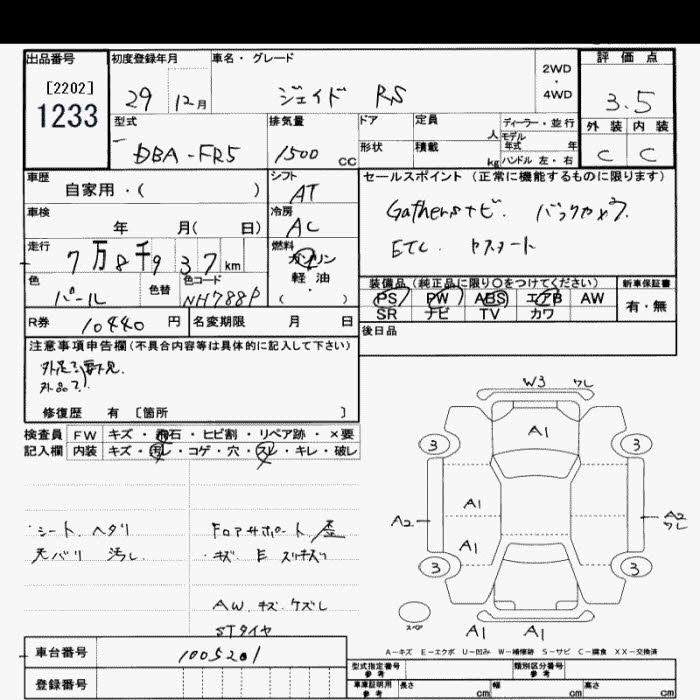 出品番号 初度登録年月 車名・グレード 2WD・4WD 評価点
[2202] 1233 29 12月 ジェイド RS 3.5
型式 排気量 ドア 定員 人 ディーラー・並行 外装 内装
DBA-FR5 1500 CC 形状 積載 kg モデル年式 年 ハンドル 左・右 C C
車歴 自家用・( ) シフト AT セールスポイント (正常に機能するものに限ります)
車検 年 月( 日) 冷房 AC Gathersナビ. バックカメラ.
走行 7万8千937km 燃料 ガソリン・軽油・( ) ETC.
色 パール 色替 色コード NH788P 装備品(純正品に限り○をつけてください) 新車保証書
PS PW ABS エアB AW 有・無
SR ナビ TV カワ
R券 10440円 名変期限 月 日 後日品
注意事項申告欄(不具合内容等は具体的に記入して下さい)
修復歴 有 〔箇所 〕
検査員 FW キズ・飛石・ヒビ割・リペア跡・×要
記入欄 内装 キズ・汚レ・コゲ・穴・スレ・キレ・破レ
W3 ワレ
A1
3 3
A1
A2 A2 ワレ
A1
3 3
スペア A1 A1
シート ヘタリ
天バリ 汚レ
FロアサポートE歪
・キズ E スリキズ
AW キズ ケズレ
STタイヤ
A-キズ E-エクボ U-凹み W-補修跡 S-サビ C-腐食 XX-交換済
車台番号 1005201 型式指定番号 参考 類別区分番号 参考
登録番号 車庫証明用 参考 長さ cm 幅 cm 高さ cm